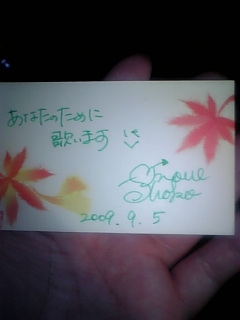 あなたのために
歌います
Inoue
Shoko
2009.9.5